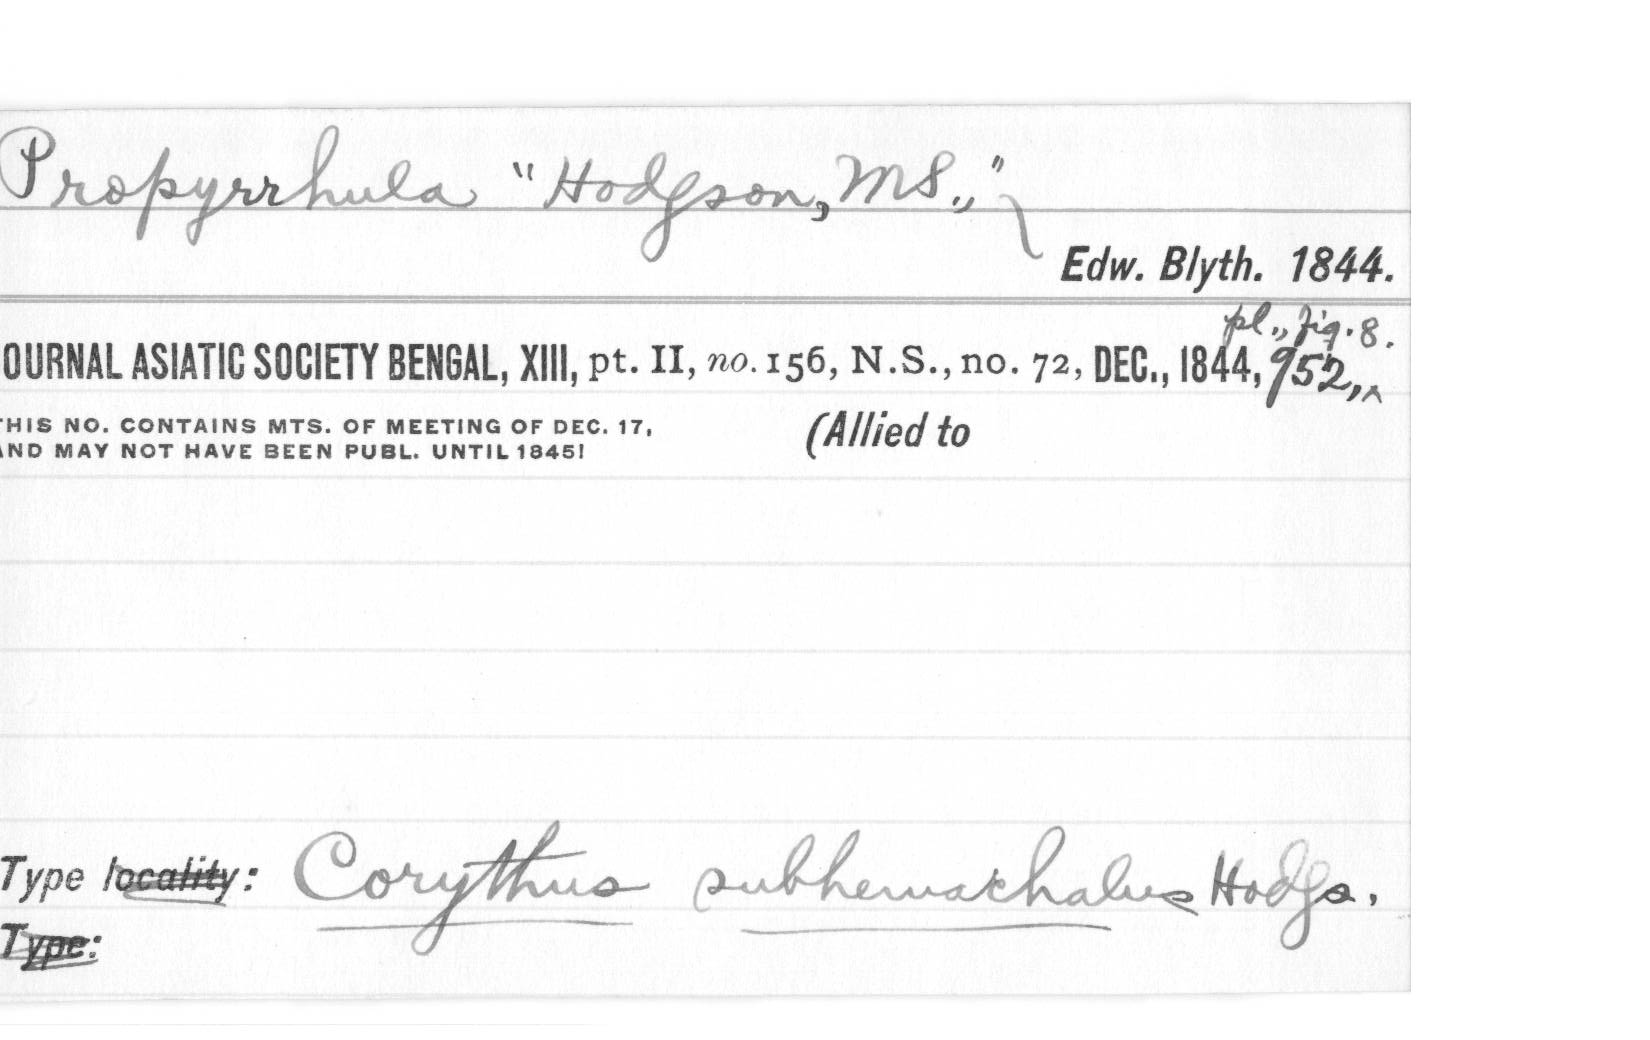 Propyrrhula "Hodgson, MS.,"
Edw. Blyth. 1844.
pl., fig. 8.
OURNAL ASIATIC SOCIETY BENGAL, XIII, pt. II, no. 156, N.S., no. 72, DEC., 1844, 952,^
THIS NO. CONTAINS MTS. OF MEETING OF DEC. 17,
(Allied to
AND MAY NOT HAVE BEEN PUBL. UNTIL 1845!
Type locality: Corythus subhemachalus Hodgs.
Type: